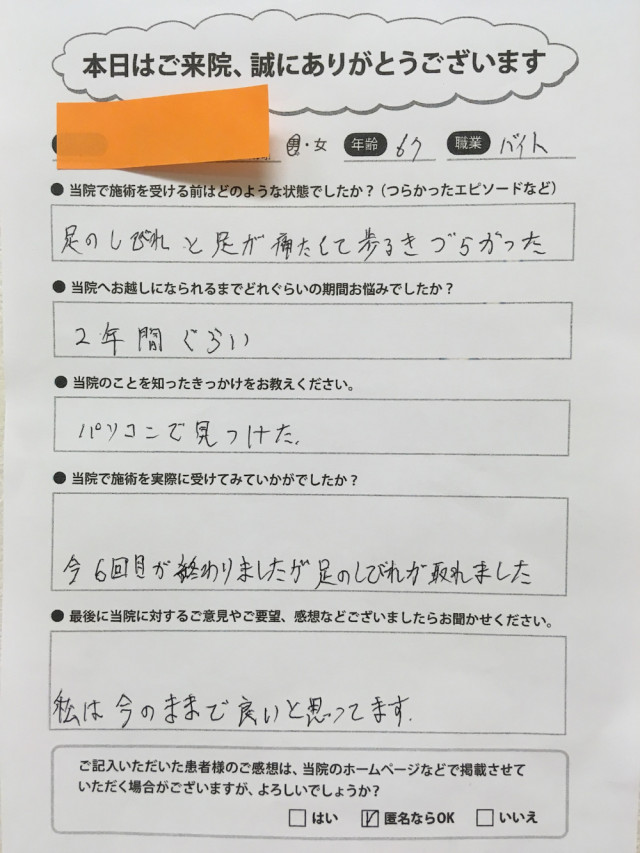 本日はご来院、誠にありがとうございます
男・女 年齢 67 職業 バイト
●当院で施術を受ける前はどのような状態でしたか？（つらかったエピソードなど）
足のしびれと足が痛たくて歩るきづらかった
●当院へお越しになられるまでどれぐらいの期間お悩みでしたか？
2年間ぐらい
●当院のことを知ったきっかけをお教えください。
パソコンで見つけた。
●当院で施術を実際に受けてみていかがでしたか？
今6回目が終わりましたが足のしびれが取れました
●最後に当院に対するご意見やご要望、感想などございましたらお聞かせください。
私は今のままで良いと思ってます.
ご記入いただいた患者様のご感想は、当院のホームページなどで掲載させて
いただく場合がございますが、よろしいでしょうか？
□はい ☑匿名ならOK □いいえ